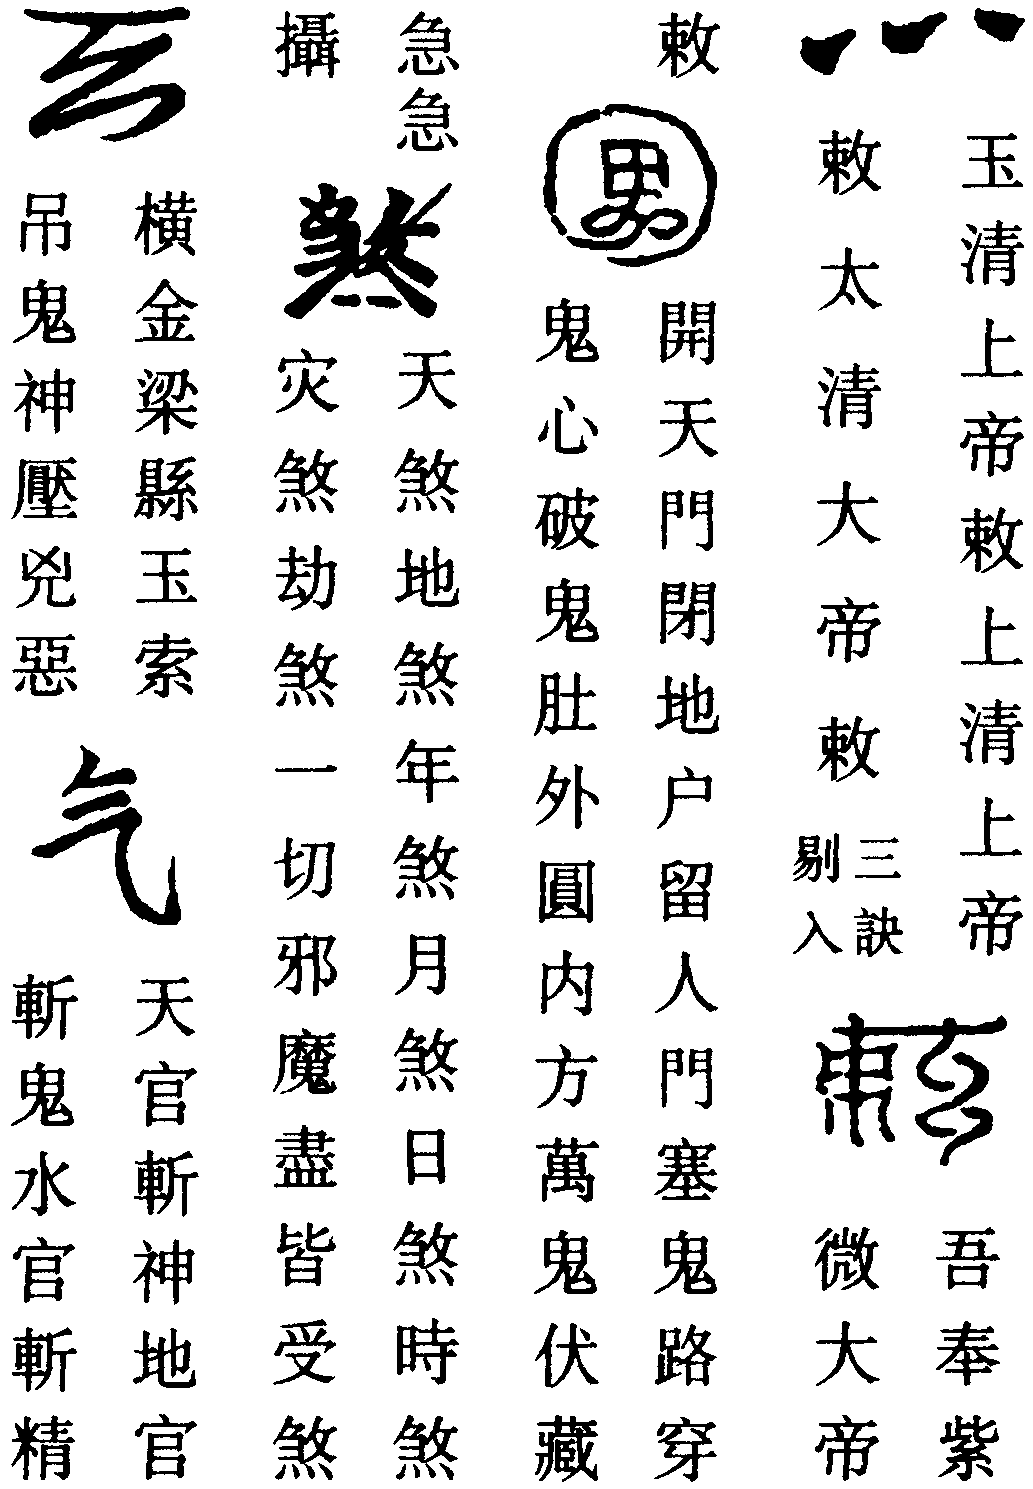 玉清上帝敕上清上帝
敕太清大帝敕
三訣
剔入
吾奉紫
微大帝
敕
開天門閉地户留人門塞鬼路穿
鬼心破鬼肚外圓内方萬鬼伏藏
急急
攝
煞
天煞地煞年煞月煞日煞時煞
灾煞劫煞一切邪魔盡皆受煞
横金梁縣玉索
吊鬼神壓兇惡
气
天官斬神地官
斬鬼水官斬精